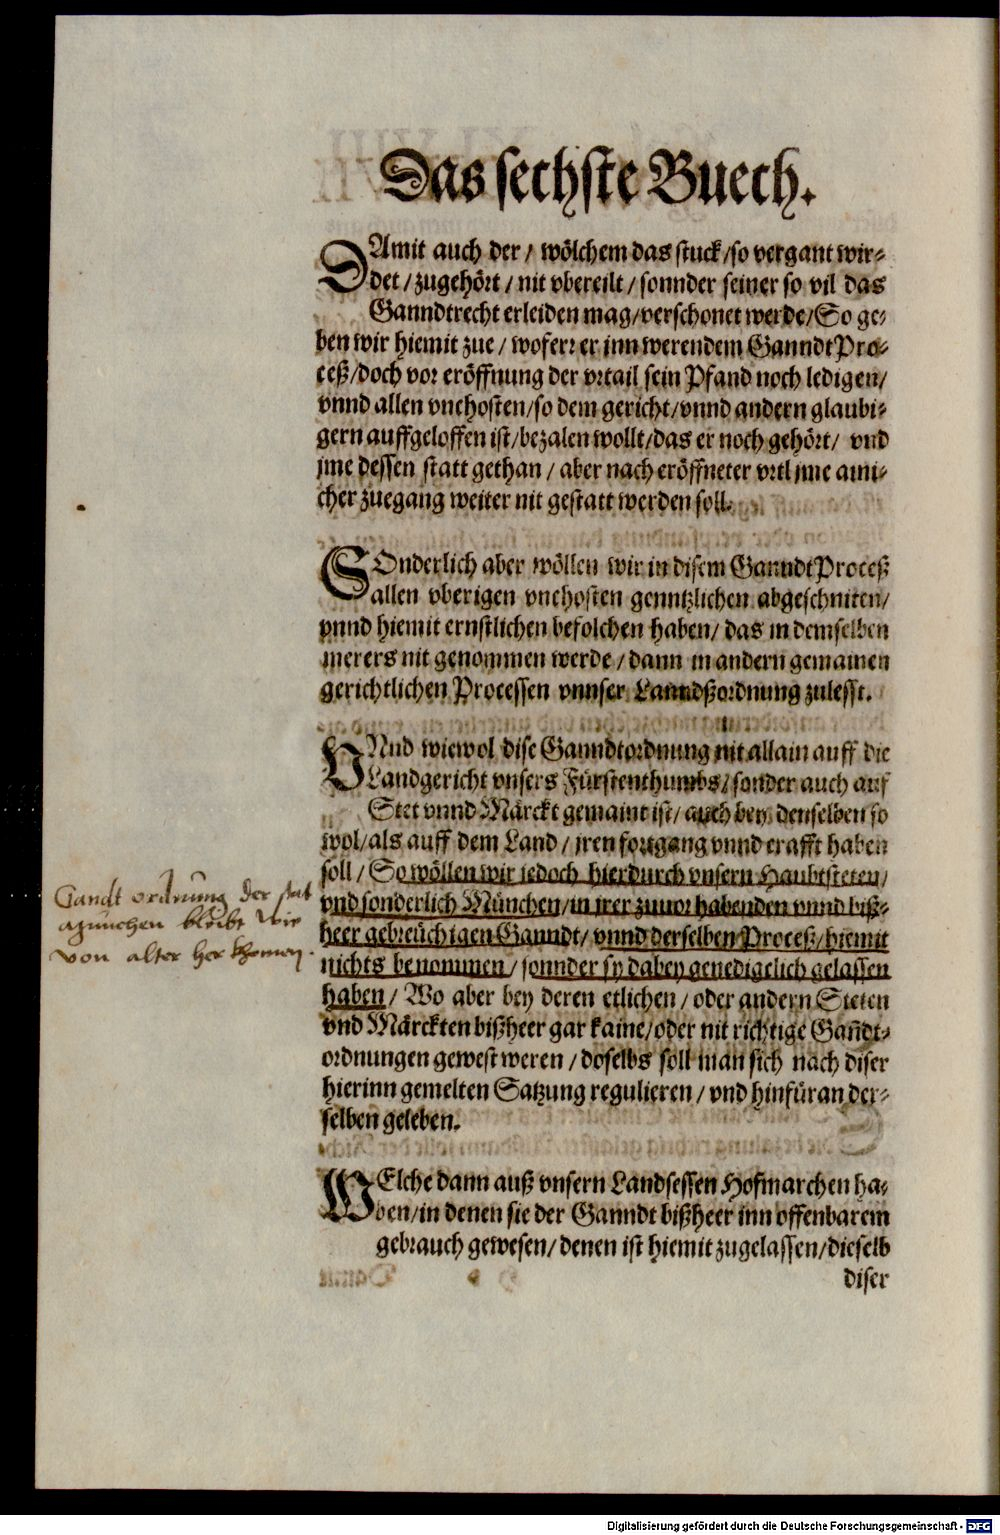 Das sechste Buech.
DAmit auch der / wölchem das stuck / so vergant wir-
det / zugehört / nit vbereilt / sonnder seiner so vil das
Ganndtrecht erleiden mag / verschonet werde / So ge-
ben wir hiemit zue / woferr er inn werendem GanndtPro-
ceß / doch vor eröffnung der vrtail sein Pfand noch ledigen /
vnnd allen vnchosten / so dem gericht / vnnd andern glaubi-
gern auffgeloffen ist / bezalen wollt / das er noch gehört / vnd
jme dessen statt gethan / aber nach eröffneter vrtl jme aini-
cher zuegang weiter nit gestatt werden soll.
SOnderlich aber wöllen wir in disem GanndtProceß
allen vberigen vnchosten genntzlichen abgeschniten /
vnnd hiemit ernstlichen befolchen haben / das in demselben
merers nit genommen werde / dann in andern gemainen
gerichtlichen Processen vnnser Lanndßordnung zulesst.
VNnd wiewol dise Ganndtordnung nit allain auff die
Landgericht vnsers Fürstenthumbs / sonder auch auf
Stet vnnd Märckt gemaint ist / auch bey denselben so
wol / als auff dem Land / jren fortgang vnnd crafft haben
soll / So wöllen wir jedoch hierdurch vnsern Haubtsteten /
vnd sonderlich München / in jrer zuuor habenden vnnd biß-
heer gebreüchigen Ganndt / vnnd derselben Proceß / hiemit
nichts benommen / sonnder sy dabey genedigelich gelassen
haben / Wo aber bey deren etlichen / oder andern Steten
vnd Märckten bißheer gar kaine / oder nit richtige Gan̄dt-
ordnungen gewest weren / doselbs soll man sich nach diser
hierinn gemelten Satzung regulieren / vnd hinfüran der-
selben geleben.
Gandt ordnung der stat
München bleibt wie
von alter her khomen.
WElche dann auß vnsern Landsessen Hofmarchen ha-
ben / in denen sie der Ganndt bißheer inn offenbarem
gebrauch gewesen / denen ist hiemit zugelassen / dieselb
diser
Digitalisierung gefördert durch die Deutsche Forschungsgemeinschaft - DFG